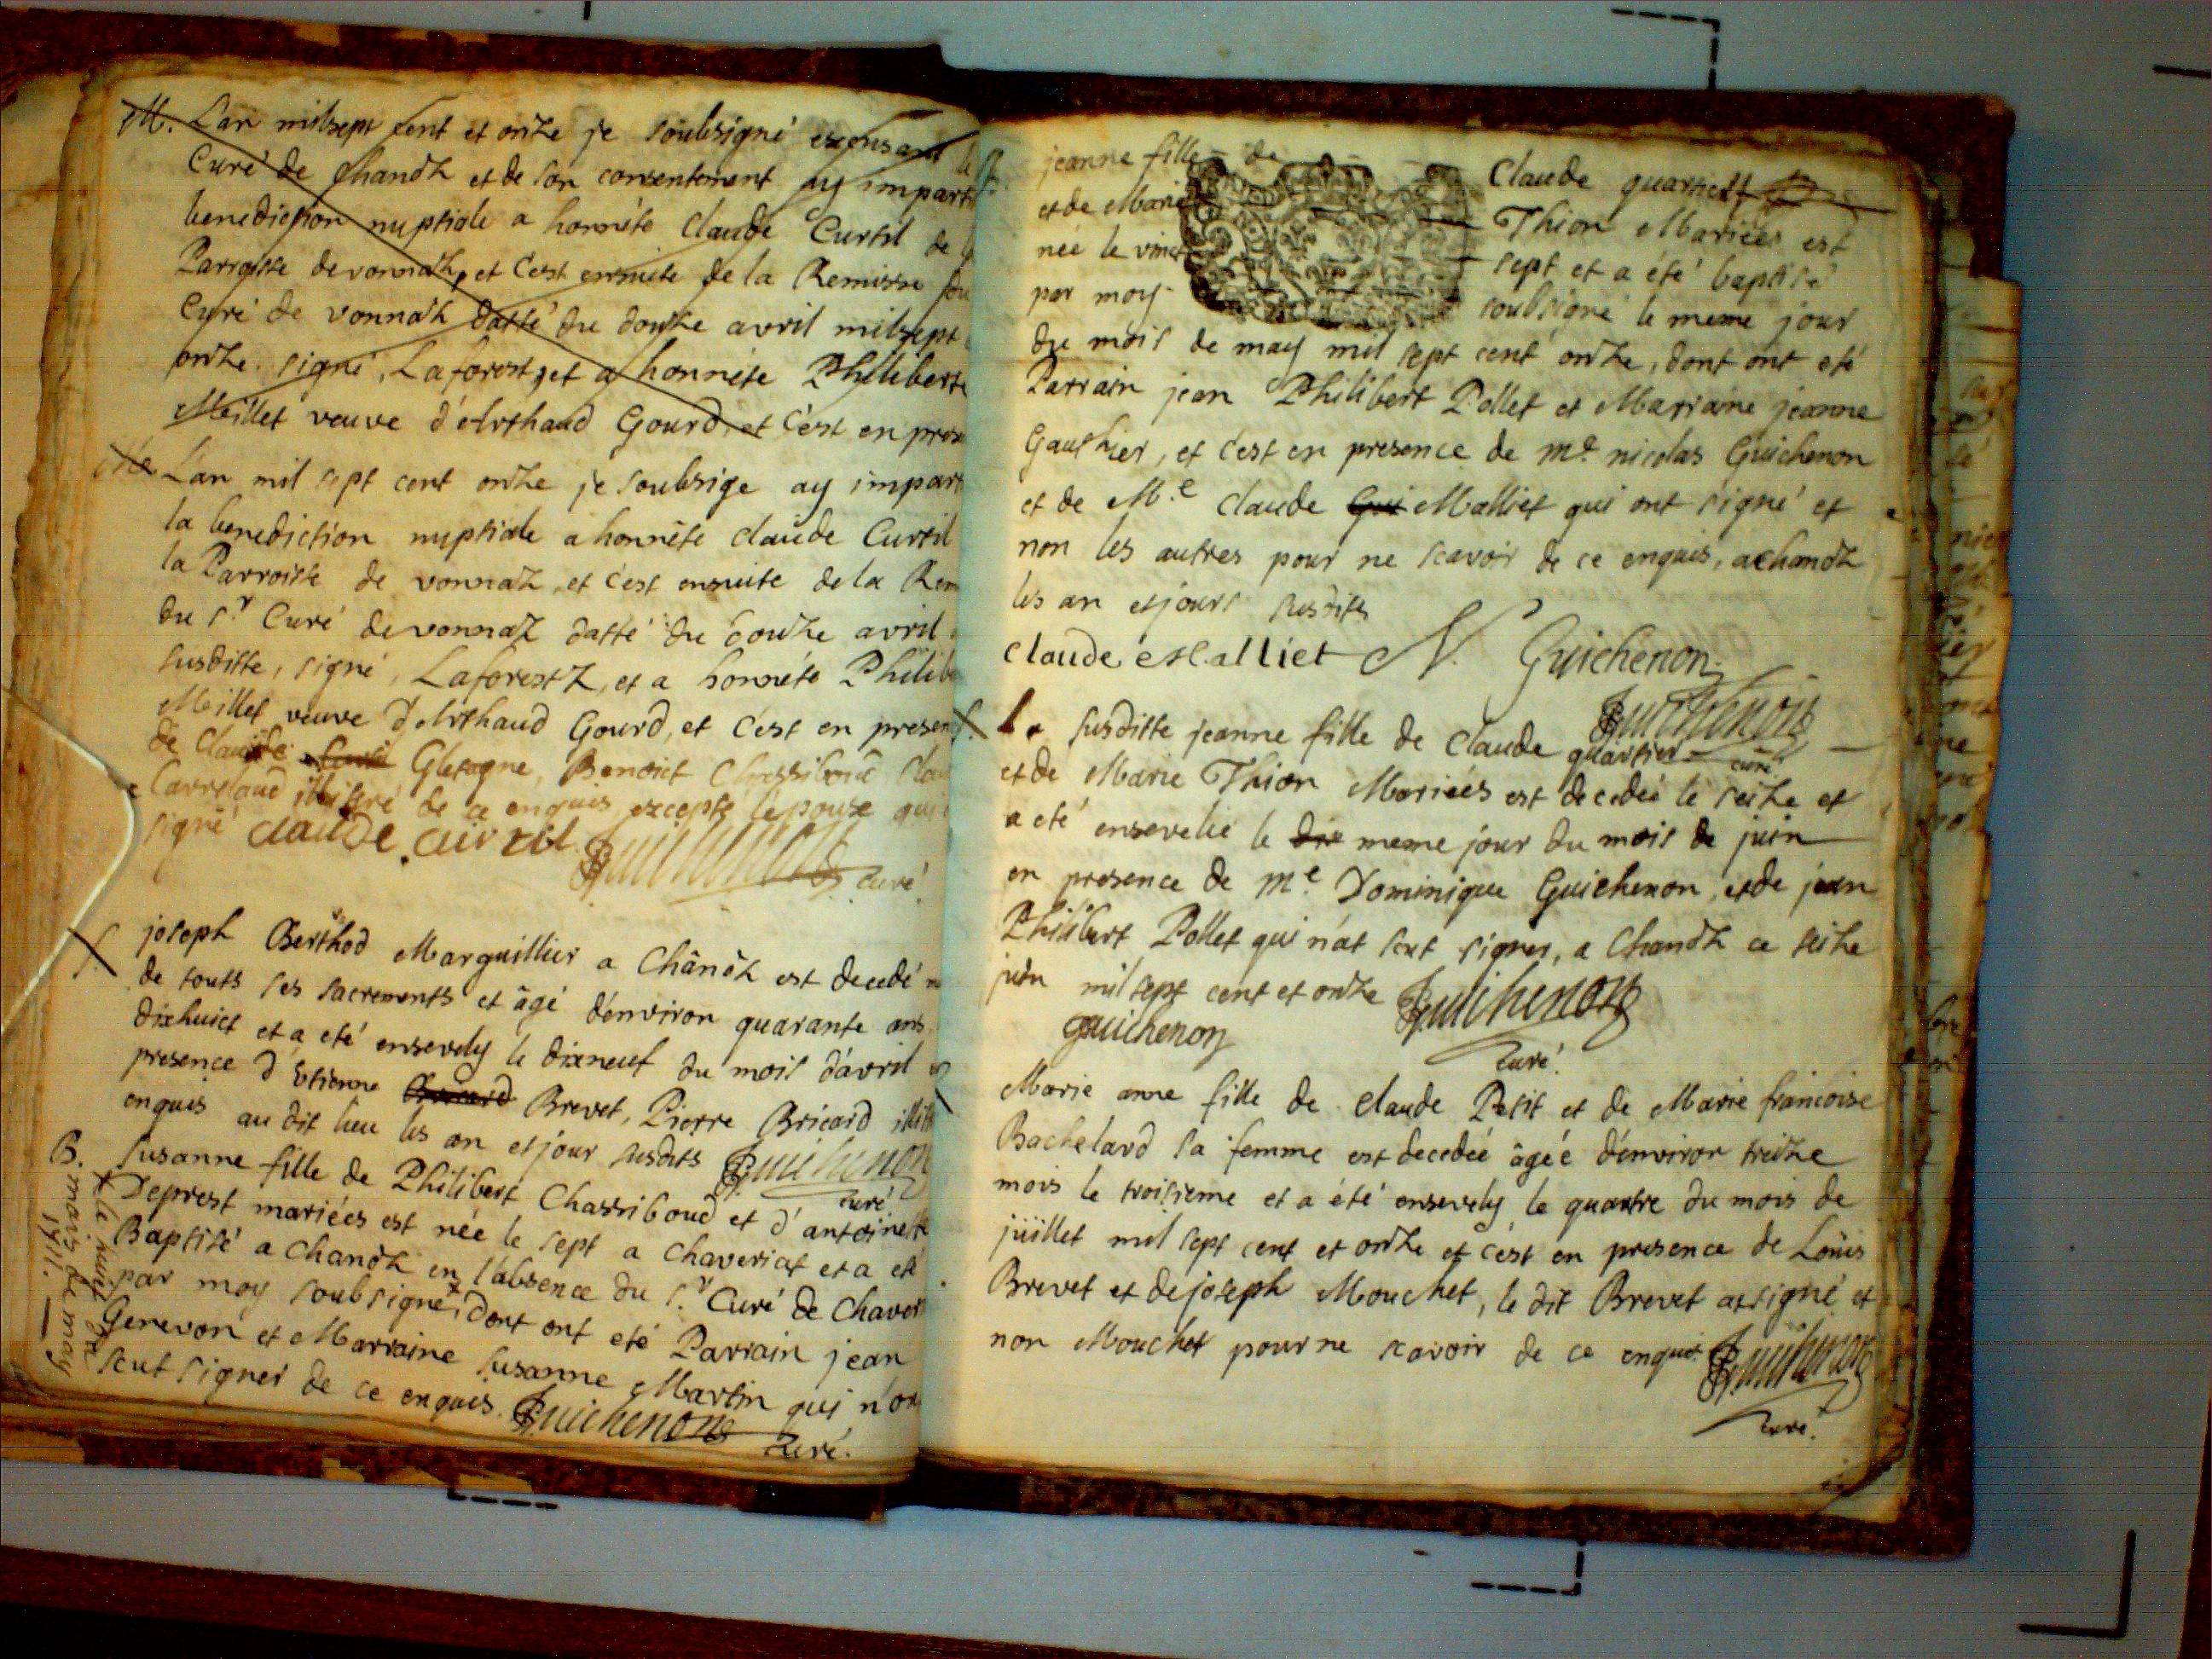 M. L'an mil sept cent et onze je soubsigné
Curé de Chanoz et de son consentement ay impart
benediction nuptiale a honnéte Claude Curtil de
Parroisse de vonnaz, et c'est ensuite de la Remisse
Curé de vonnaz datté du douze avril mil sept
onze. signé, Laforest, et a honnéte Philiberte
Meillet veuve d'Arthaud Gourd, et c'est en pres
L'an mil sept cent onze je soubsigé ay impart
la benediction nuptiale a honnéte claude Curtil
la Parroisse de vonnaz, et c'est ensuite de la Rem
du Sr. Curé de vonnaz datté du douze avril
susditte, signé, Laforestz, et a honnéte Philibe
Meillet veuve d'Arthaud Gourd, et c'est en presen
de Claude Gletagne, Benoict Chassiboud Clau
illiteré de ce enquis excepté lepoux qui
signé claude curtil Guichenon curé
joseph Berthod Marguillier a Chânôz est decedé
de touts ses sacrements et âgé d'environ quarante ans
dixhuict et a eté ensevely le dixneuf du mois d'avril
presence d'Etienne Bricard Brevet, Pierre Bricard illit
enquis au dit lieu les an et jour susdits Guichenon
curé
B. Susanne fille de Philibert Chassiboud et d'antoinette
Deprest mariées est née le sept a Chaveriat et a eté
Baptisé a Chanoz en l'absence du Sr. Curé de Chaver
par moy soubsigné, dont ont eté Parrain jean
Genevon et Marraine Susanne Martin qui n'on
sceut signer de ce enquis. Guichenon
curé.
+ le huit du
mois de may
1711.
jeanne fille de Claude quartier
et de Marie Thion Mariées est
née le vinct sept et a été baptisé
par moy soubsigné le meme jour
du mois de may mil sept cent onze, dont ont eté
Parrain jean Philibert Pollet et Marraine jeanne
Gauthier, et c'est en presence de me. nicolas Guichenon
et de M.e claude Gui Malliet qui ont signé et
non les autres pour ne scavoir de ce enquis, a chanoz
les an et jours susdits
claude Malliet N. Guichenon
Guichenon
curé
S. La susditte jeanne fille de Claude quartier
et de Marie Thion Mariées est decedée le seize et
a eté ensevelie le dix meme jour du mois de juin
en presence de m.e Dominique Guichenon, et de jean
Philibert Pollet qui n'at sceut signer, a Chanoz ce seize
juin mil sept cent et onze Guichenon
guichenon
curé.
Marie anne fille de claude Petit et de Marie francoise
Bachelard sa femme est decedée âgée d'environ treize
mois le troisieme et a été ensevely le quatre du mois de
juillet mil sept cent et onze et c'est en presence de Loüis
Brevet et de joseph Mouchet, le dit Brevet at signé et
non Mouchet pour ne scavoir de ce enquis Guichenon
curé.